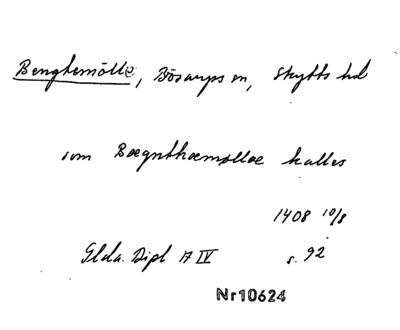 Bengtemölle, Bösarps sn, Skytts hd
som Bægnthæmøllæ kalles
1408 10/8
Glda. Dipl A IV s. 92
Nr10624